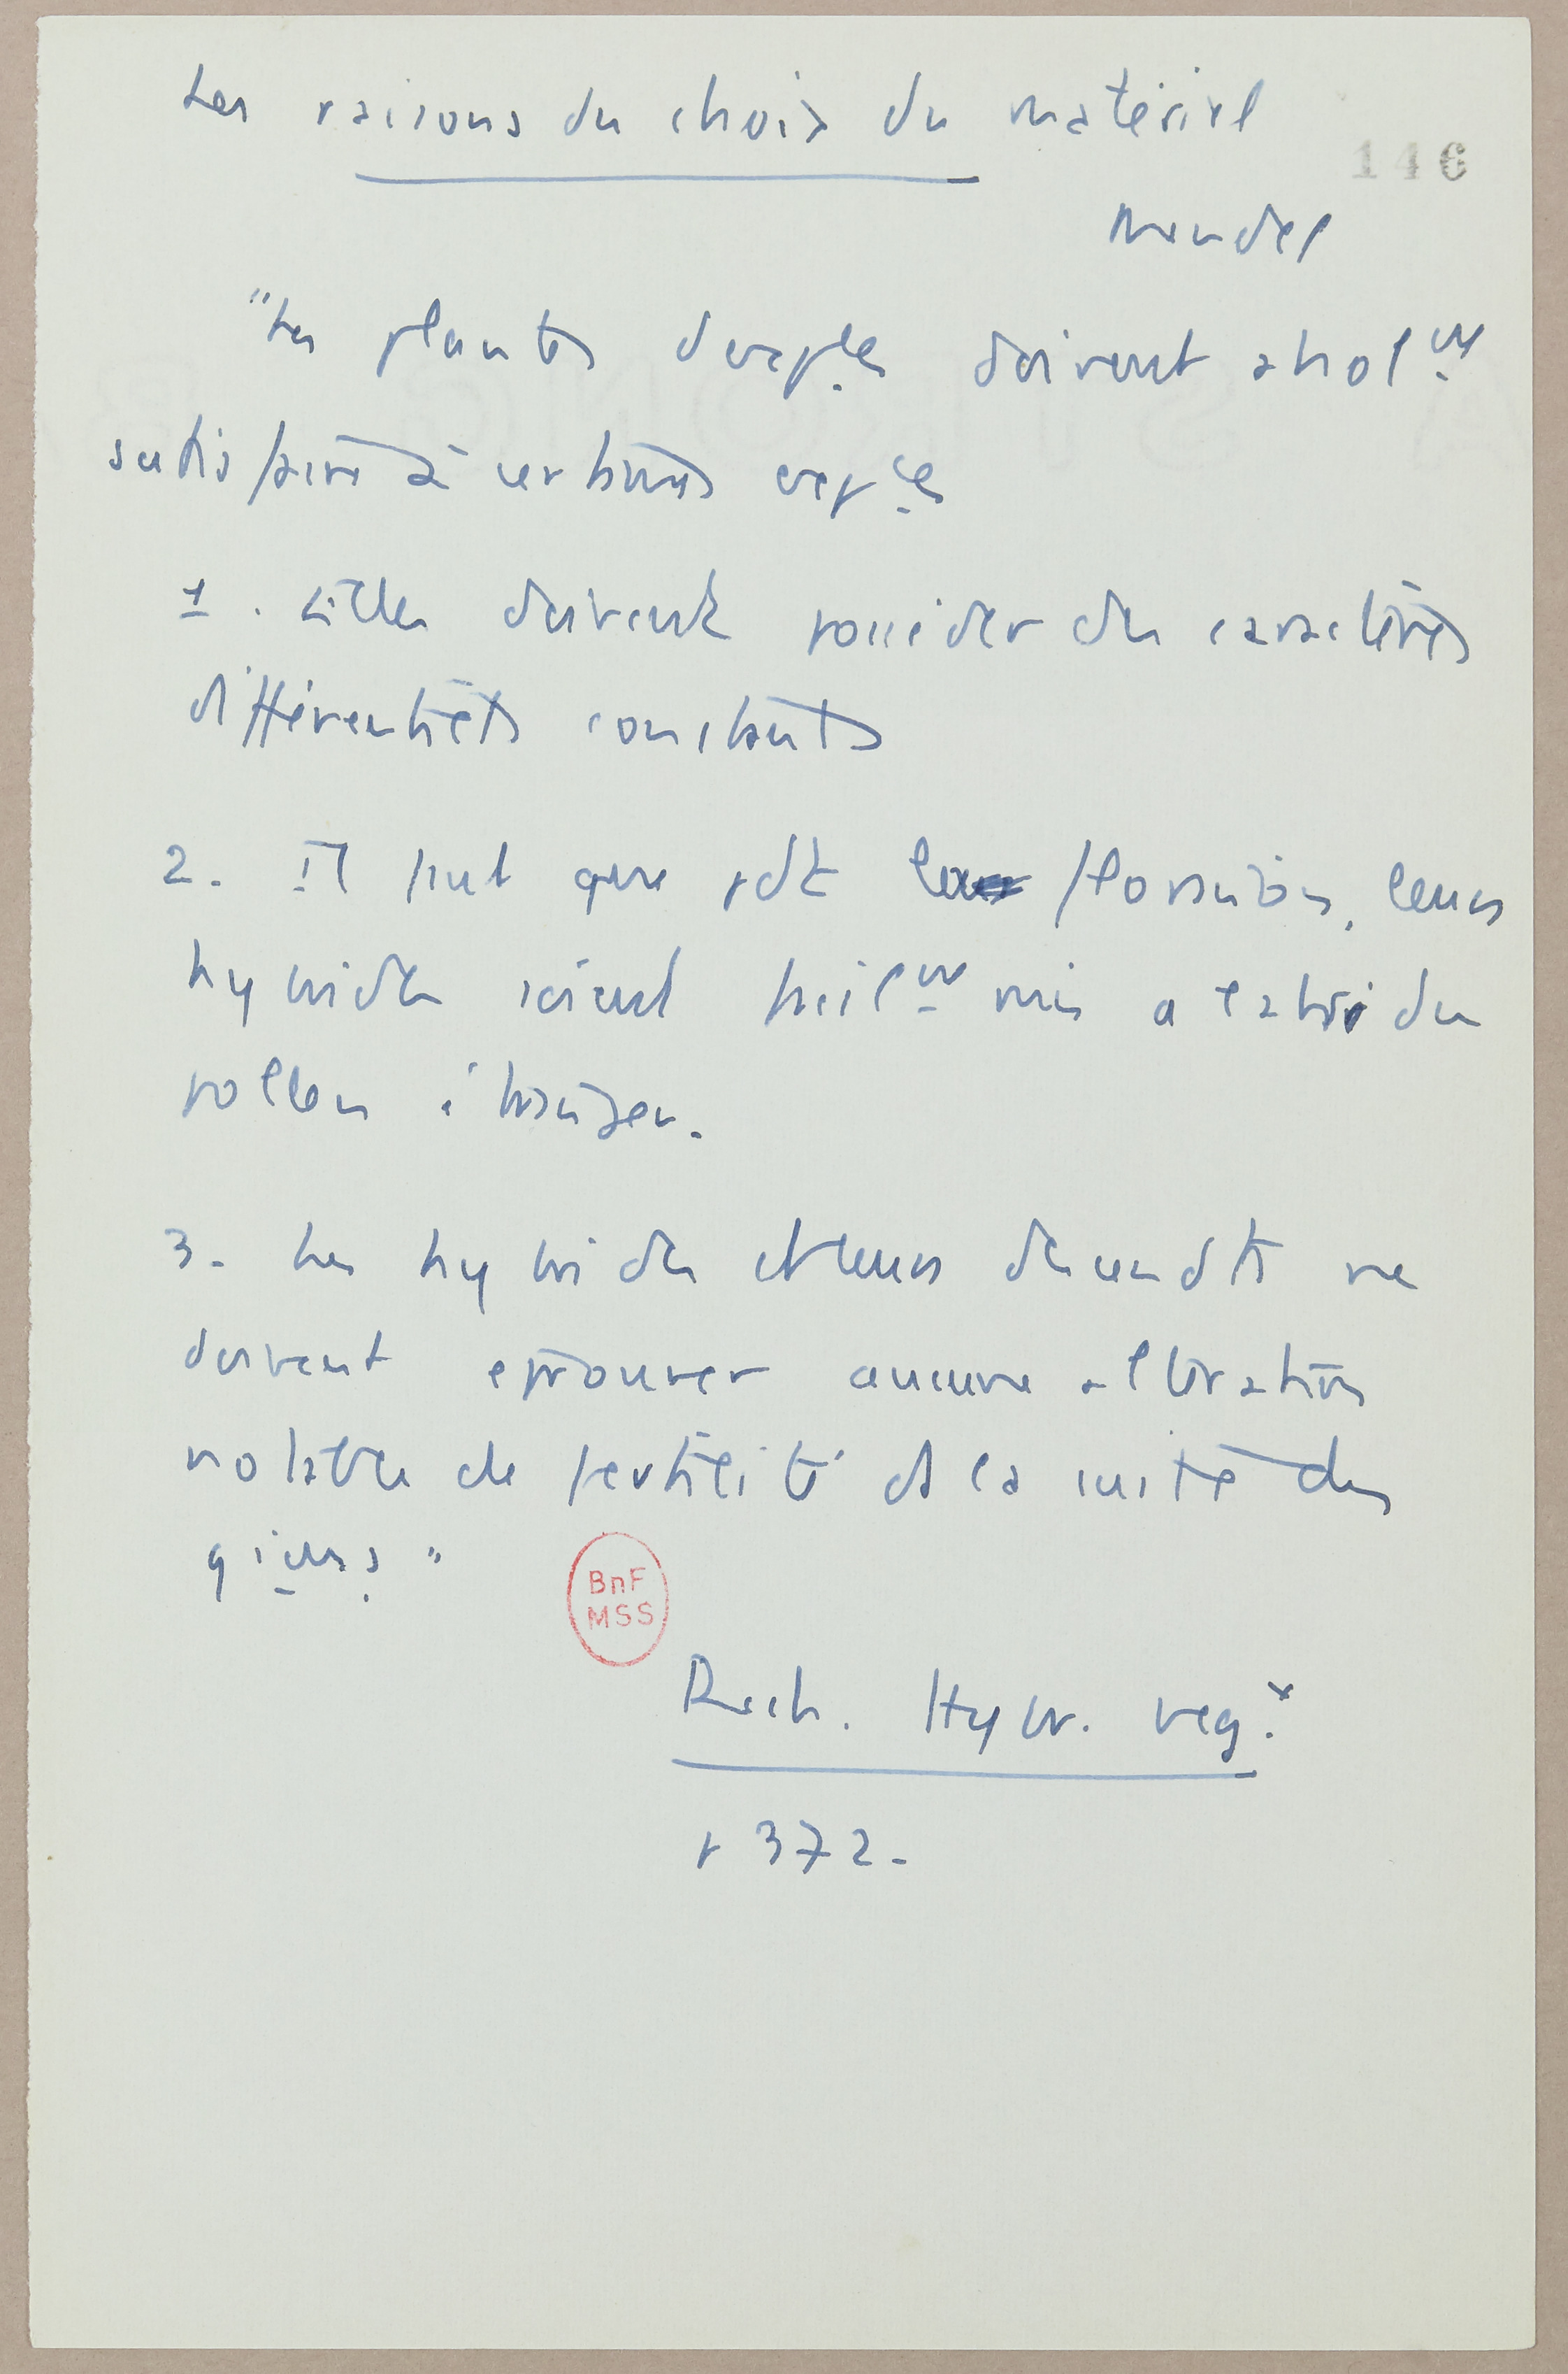 Les raisons du choix du matériel
146
Mendel
"Les plantes d'exp.ces doivent absol.nt
satisfaire à certaines exp.ces
1. Elles doivent posséder des caractères
différentiels constants
2. Il faut que pdt floraison, leurs
hybrides soient facil.nt mis à l'abri du
pollen étranger.
3. Les hybrides et leurs descendts ne
doivent éprouver aucune altération
notable de fertilité ds la suite des
BnF
MSS
Rech. Hybr. vég.x
p 372.